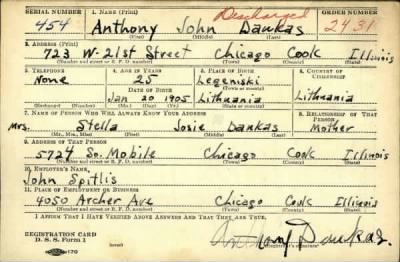 SERIAL NUMBER 1. NAME (Print) ORDER NUMBER
Discharged
454 Anthony John Dawkas 2431
(First) (Middle) (Last)
2. ADDRESS (Print)
723 W-21st Street Chicago Cook Illinois
(Number and street or R. F. D. number) (Town) (County) (State)
3. TELEPHONE 4. AGE IN YEARS 5. PLACE OF BIRTH 6. COUNTRY OF CITIZENSHIP
None 25 Legeniski
DATE OF BIRTH (Town or county)
Jan 20 1905 Lithuania Lithuania
(Exchange) (Number) (Mo.) (Day) (Yr.) (State or country)
7. NAME OF PERSON WHO WILL ALWAYS KNOW YOUR ADDRESS 8. RELATIONSHIP OF THAT PERSON
Mrs. Stella Josie Dawkas Mother
(Mr., Mrs., Miss) (First) (Middle) (Last)
9. ADDRESS OF THAT PERSON
5724 So. Mobile Chicago Cook Illinois
(Number and street or R. F. D. number) (Town) (County) (State)
10. EMPLOYER'S NAME
John Spitlis
11. PLACE OF EMPLOYMENT OR BUSINESS
4050 Archer Ave Chicago Cook Illinois
(Number and street or R. F. D. number) (Town) (County) (State)
I AFFIRM THAT I HAVE VERIFIED ABOVE ANSWERS AND THAT THEY ARE TRUE.
REGISTRATION CARD
D. S. S. Form 1 Anthony Dawkas